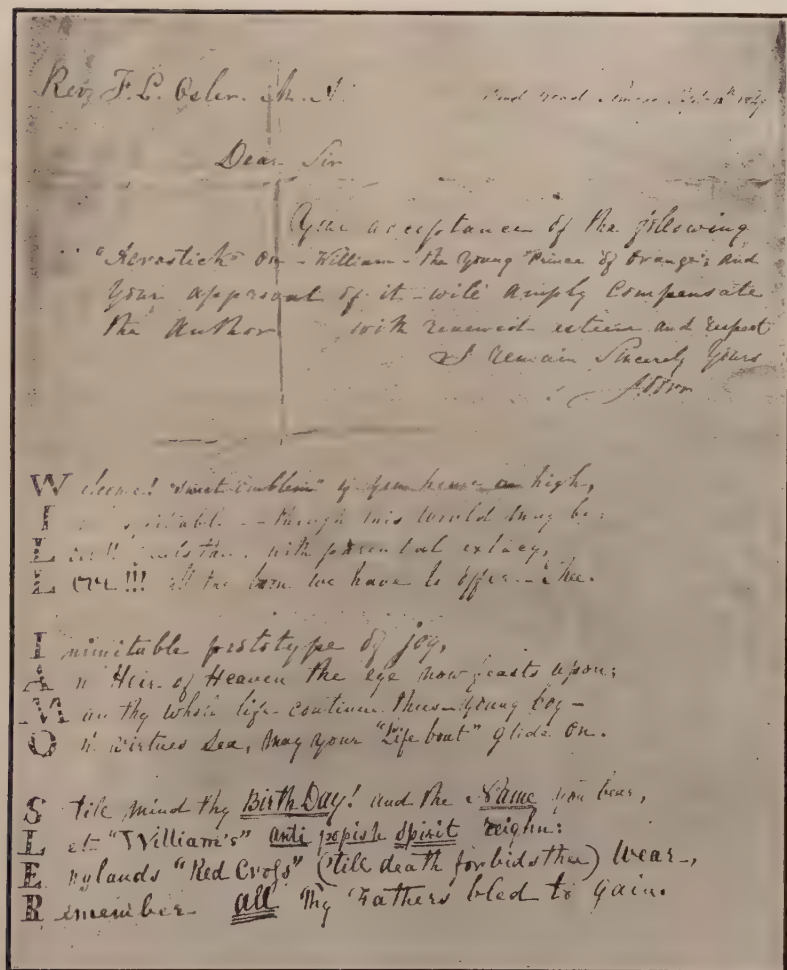 Rev, F. L. Osler. M. A.
Dear Sir
Your acceptance of the following
"Acrostick" on - William - the young "Prince of Orange" and
your approval of it - will amply compensate
the Author with renewed esteem and respect
I remain Sincerely Yours
Welcome! "sweet emblem" of high,
I though this world may be:
L with parental extacy,
Love!!! all the we have to offer - thee.
Inimitable prototype of joy,
An Heir of Heaven the eye now feasts upon;
May thy whole life continue thus - young boy -
On virtues Sea, may your "Life boat" glide on.
Still mind thy Birth Day! and the Name you bear,
Let "William's" anti popish spirit reighn:
Englands "Red Cross" (till death forbids thee) wear -,
Remember all thy Fathers bled to gain.